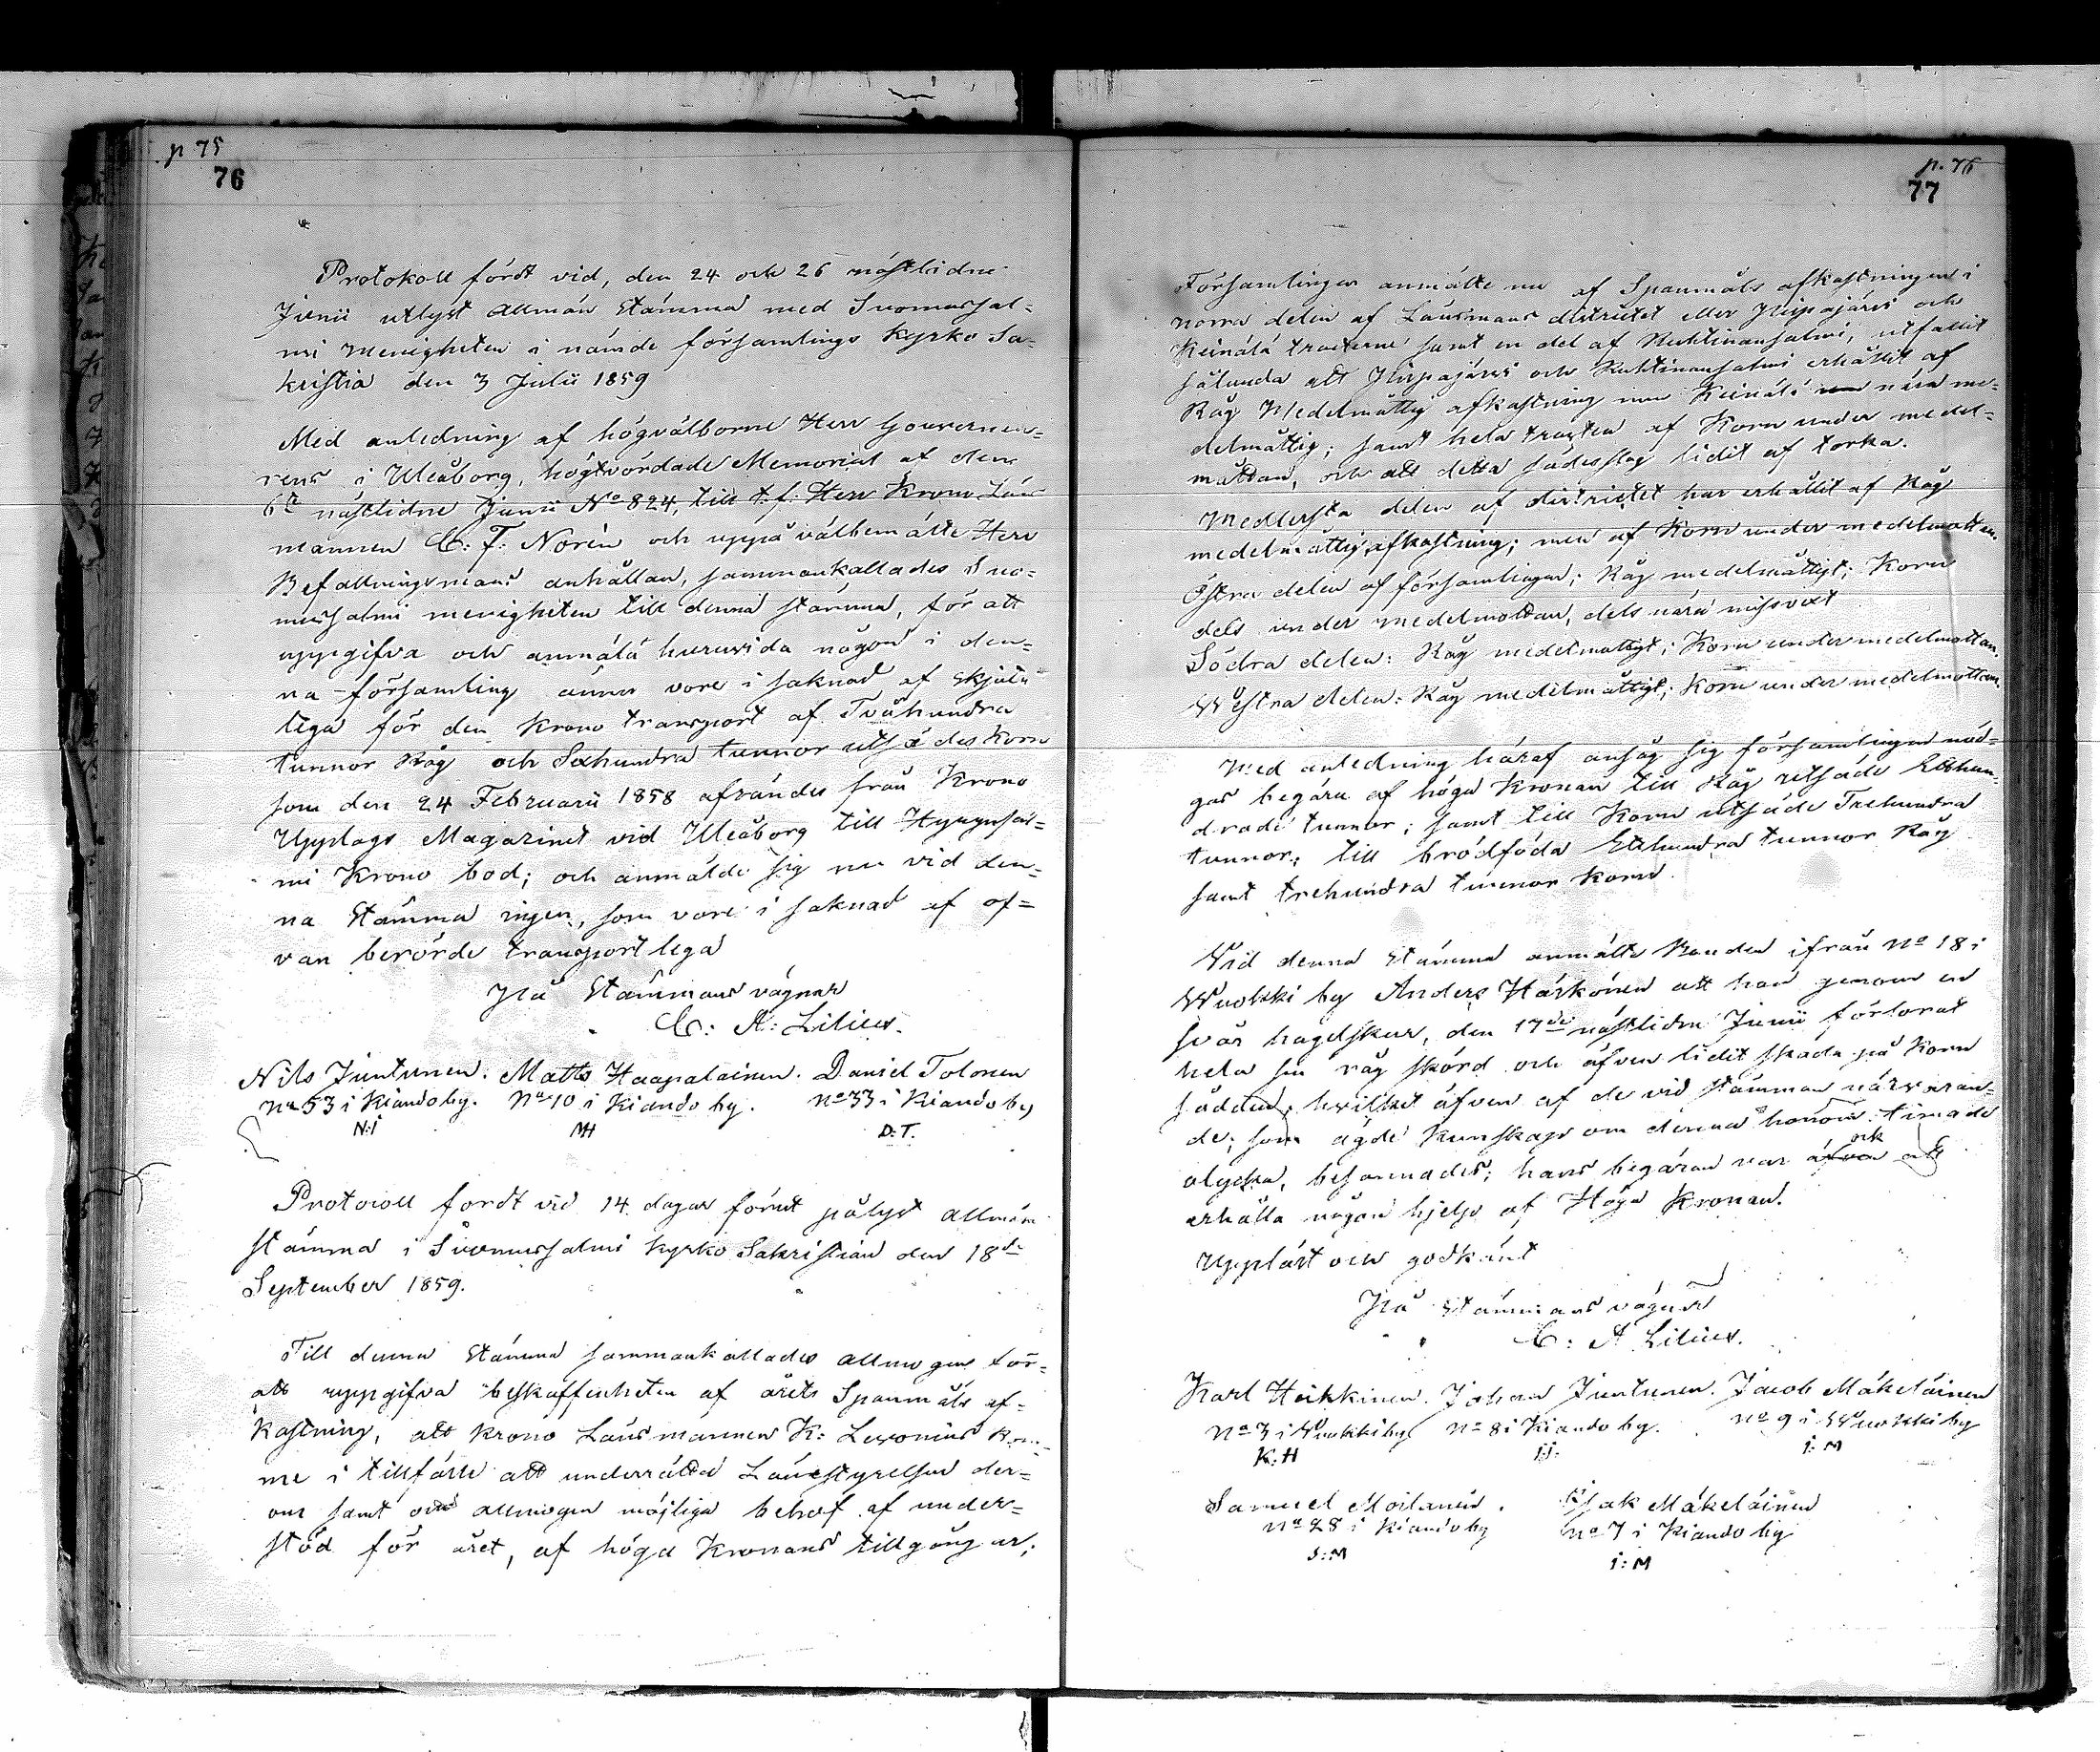 p 75
76
Protokoll fördt vid, den 24 och 26 nästlidne
Junii utlyst allmän Stämma med Suomussal-
mi menigheten i nämde församlings Kyrko Sa-
kristia den 3 Julii 1859
Med anledning af högvälborne Herr Gouverneu-
rens i Uleåborg, högtvördade Memorial af den
6te nästlidne Junii No 824, till t.f. Herr Krono Läns
mannen C: F: Norén och uppå välbemälte Herr
Befallningsmans anhållan, sammankallades Suo-
mussalmi menigheten till denna stämma, för att
uppgifva och anmäla huruvida någon i den-
na församling ännu vore i saknad af skjuts
lega för den Krono transport af Tvåhundra
tunnor Råg och Sexhundra tunnor utsädes Korn
som den 24 Februarii 1858 afsändes från Krono
Upplags Magazinet vid Uleåborg till Hyrynsal-
mi Krono bod; och anmälde sig nu vid den-
na Stämma ingen, som vore i saknad af of-
van berörde transport lega
På Stämmans vägnar
C: A: Lilius.
Nils Juntunen. Matts Haapalainen. Daniel Tolonen
No 53 i Kiando by. No 10 i Kiando by. No 33 i Kiando by
N:J MH D:T.
Protocoll fördt vid 14 dagar förut pålyst allmän
stämma i Suomussalmi Kyrko Sakristian den 18de
September 1859.
Till denna Stämma sammankallades allmogen för-
att uppgifva beskaffenheten af årets Spanmåls af-
kastning, att Krono Länsmannen K: Levonius kom-
me i tillfälle att underrätta Länestyrelsen der-
om samt om allmogens möjliga behof af under-
stöd för året, af höga Kronans tillgångar;
p. 76
77
Församlingen anmälte nu af Spanmåls afkastningen i
norra delen af Länsmans districtet eller Pispajärvi och
Keinälä tracterne samt en del af Ruhtinansalmi, utfallit
sålunda att Pispajärvi och Ruhtinansalmi erhållit af
Råg Medelmåttig afkastning men Keinälä nära me-
delmåttig; samt hela trakten af Korn under medel-
måttan, och att detta sädesslag lidit af torka.
Medlersta delen af districtet har erhållit af Råg
medelmåttig afkastning; men af Korn under medelmåttan.
Östra delen af församlingen; Råg medelmåttigt; Korn
dels under medelmåttan, dels nära missvext
Södra delen: Råg medelmåttigt; Korn under medelmåttan.
Westra delen: Råg medelmåttigt; Korn under medelmåttan.
Med anledning häraf ansåg sig församlingen nöd-
gas begära af höga Kronan till Råg utsäde Etthun-
drade tunnor; samt till Korn utsäde Trehundra
tunnor; till brödföda Etthundra tunnor Råg
samt trehundra tunnor Korn.
Vid denna Stämma anmälte Bonden ifrån No 18 i
Wuokki by Anders Härkönen att han genom en
svår hagelskur, den 17de nästlidne Junii förlorat
hela sin råg skörd och äfven lidit skada på Korn
sådden, hvilket äfven af de vid stämman närvaran-
de; som ägde kunskap om denna honom timade
olycka, besannades; hans begäran var äfven och att
erhålla någon hjelp af Höga Kronan.
Uppläst och godkänt
På Stämmans vägnar
C: A Lilius.
Karl Heikkinen. Johan Juntunen. Jacob Mäkeläinen
No 3 i Wuokki by No 8 i Kiando by. No 9 i Wuokki by
K:H J:J: J:M
Samuel Moilanen. Isak Mäkeläinen
No 28 i Kiando by No 7 i Kiando by
S:M I:M